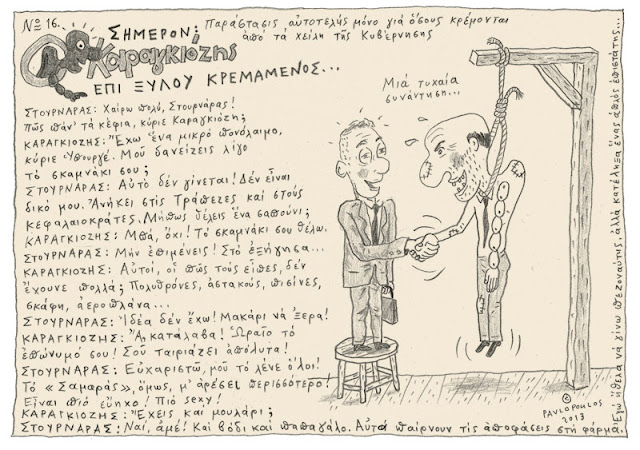 Νο 16.
ΣΗΜΕΡΟΝ:
Παράστασις αὐτοτελής μόνο γιά ὅσους κρέμονται
ἀπό τά χείλη τῆς Κυβέρνησης
Καραγκιόζης
ΕΠΙ ΞΥΛΟΥ ΚΡΕΜΑΜΕΝΟΣ...
ΣΤΟΥΡΝΑΡΑΣ: Χαίρω πολύ, Στουρνάρας!
Πῶς πᾶν' τά κέφια, κύριε Καραγκιόζη;
ΚΑΡΑΓΚΙΟΖΗΣ: Ἔχω ἕνα μικρό πονόλαιμο,
κύριε Ὑπουργέ. Μοῦ δανείζεις λίγο
τό σκαμνάκι σου;
ΣΤΟΥΡΝΑΡΑΣ: Αὐτό δέν γίνεται! Δέν εἶναι
δικό μου. Ἀνήκει στίς Τράπεζες καί στούς
κεφαλαιοκράτες. Μήπως θέλεις ἕνα σαπούνι;
ΚΑΡΑΓΚΙΟΖΗΣ: Μπά, ὄχι! Τό σκαμνάκι σου θέλω.
ΣΤΟΥΡΝΑΡΑΣ: Μήν ἐπιμένεις! Στό ἐξήγησα...
ΚΑΡΑΓΚΙΟΖΗΣ: Αὐτοί, οἱ πῶς τούς εἶπες, δέν
ἔχουνε πολλά; Πολυθρόνες, ἀστακούς, πισίνες,
σκάφη, ἀεροπλάνα...
ΣΤΟΥΡΝΑΡΑΣ: Ἰδέα δέν ἔχω! Μακάρι νά ξερα!
ΚΑΡΑΓΚΙΟΖΗΣ: Ἄ, κατάλαβα! Ὡραῖο τό
ἐπώνυμό σου! Σοῦ ταιριάζει ἀπόλυτα!
ΣΤΟΥΡΝΑΡΑΣ: Εὐχαριστῶ, μοῦ τό λένε ὅλοι!
Τό «Σαμαράς», ὅμως, μ' ἀρέσει περισσότερο!
Εἶναι πιό εὔηχο! Πιό sexy!
ΚΑΡΑΓΚΙΟΖΗΣ: Ἔχεις καί μουλάρι;
ΣΤΟΥΡΝΑΡΑΣ: Ναί, ἀμέ! Καί βόδι καί παπαγάλο. Αὐτά παίρνουν τίς ἀποφάσεις στή φάρμα.
Μιά τυχαία
συνάντηση...
Ἐγώ ἤθελα νά γίνω πεζοναύτης, ἀλλά κατέληξα ἕνας ἁπλός ἐπιστάτης...
©
PAVLOPOULOS
2013